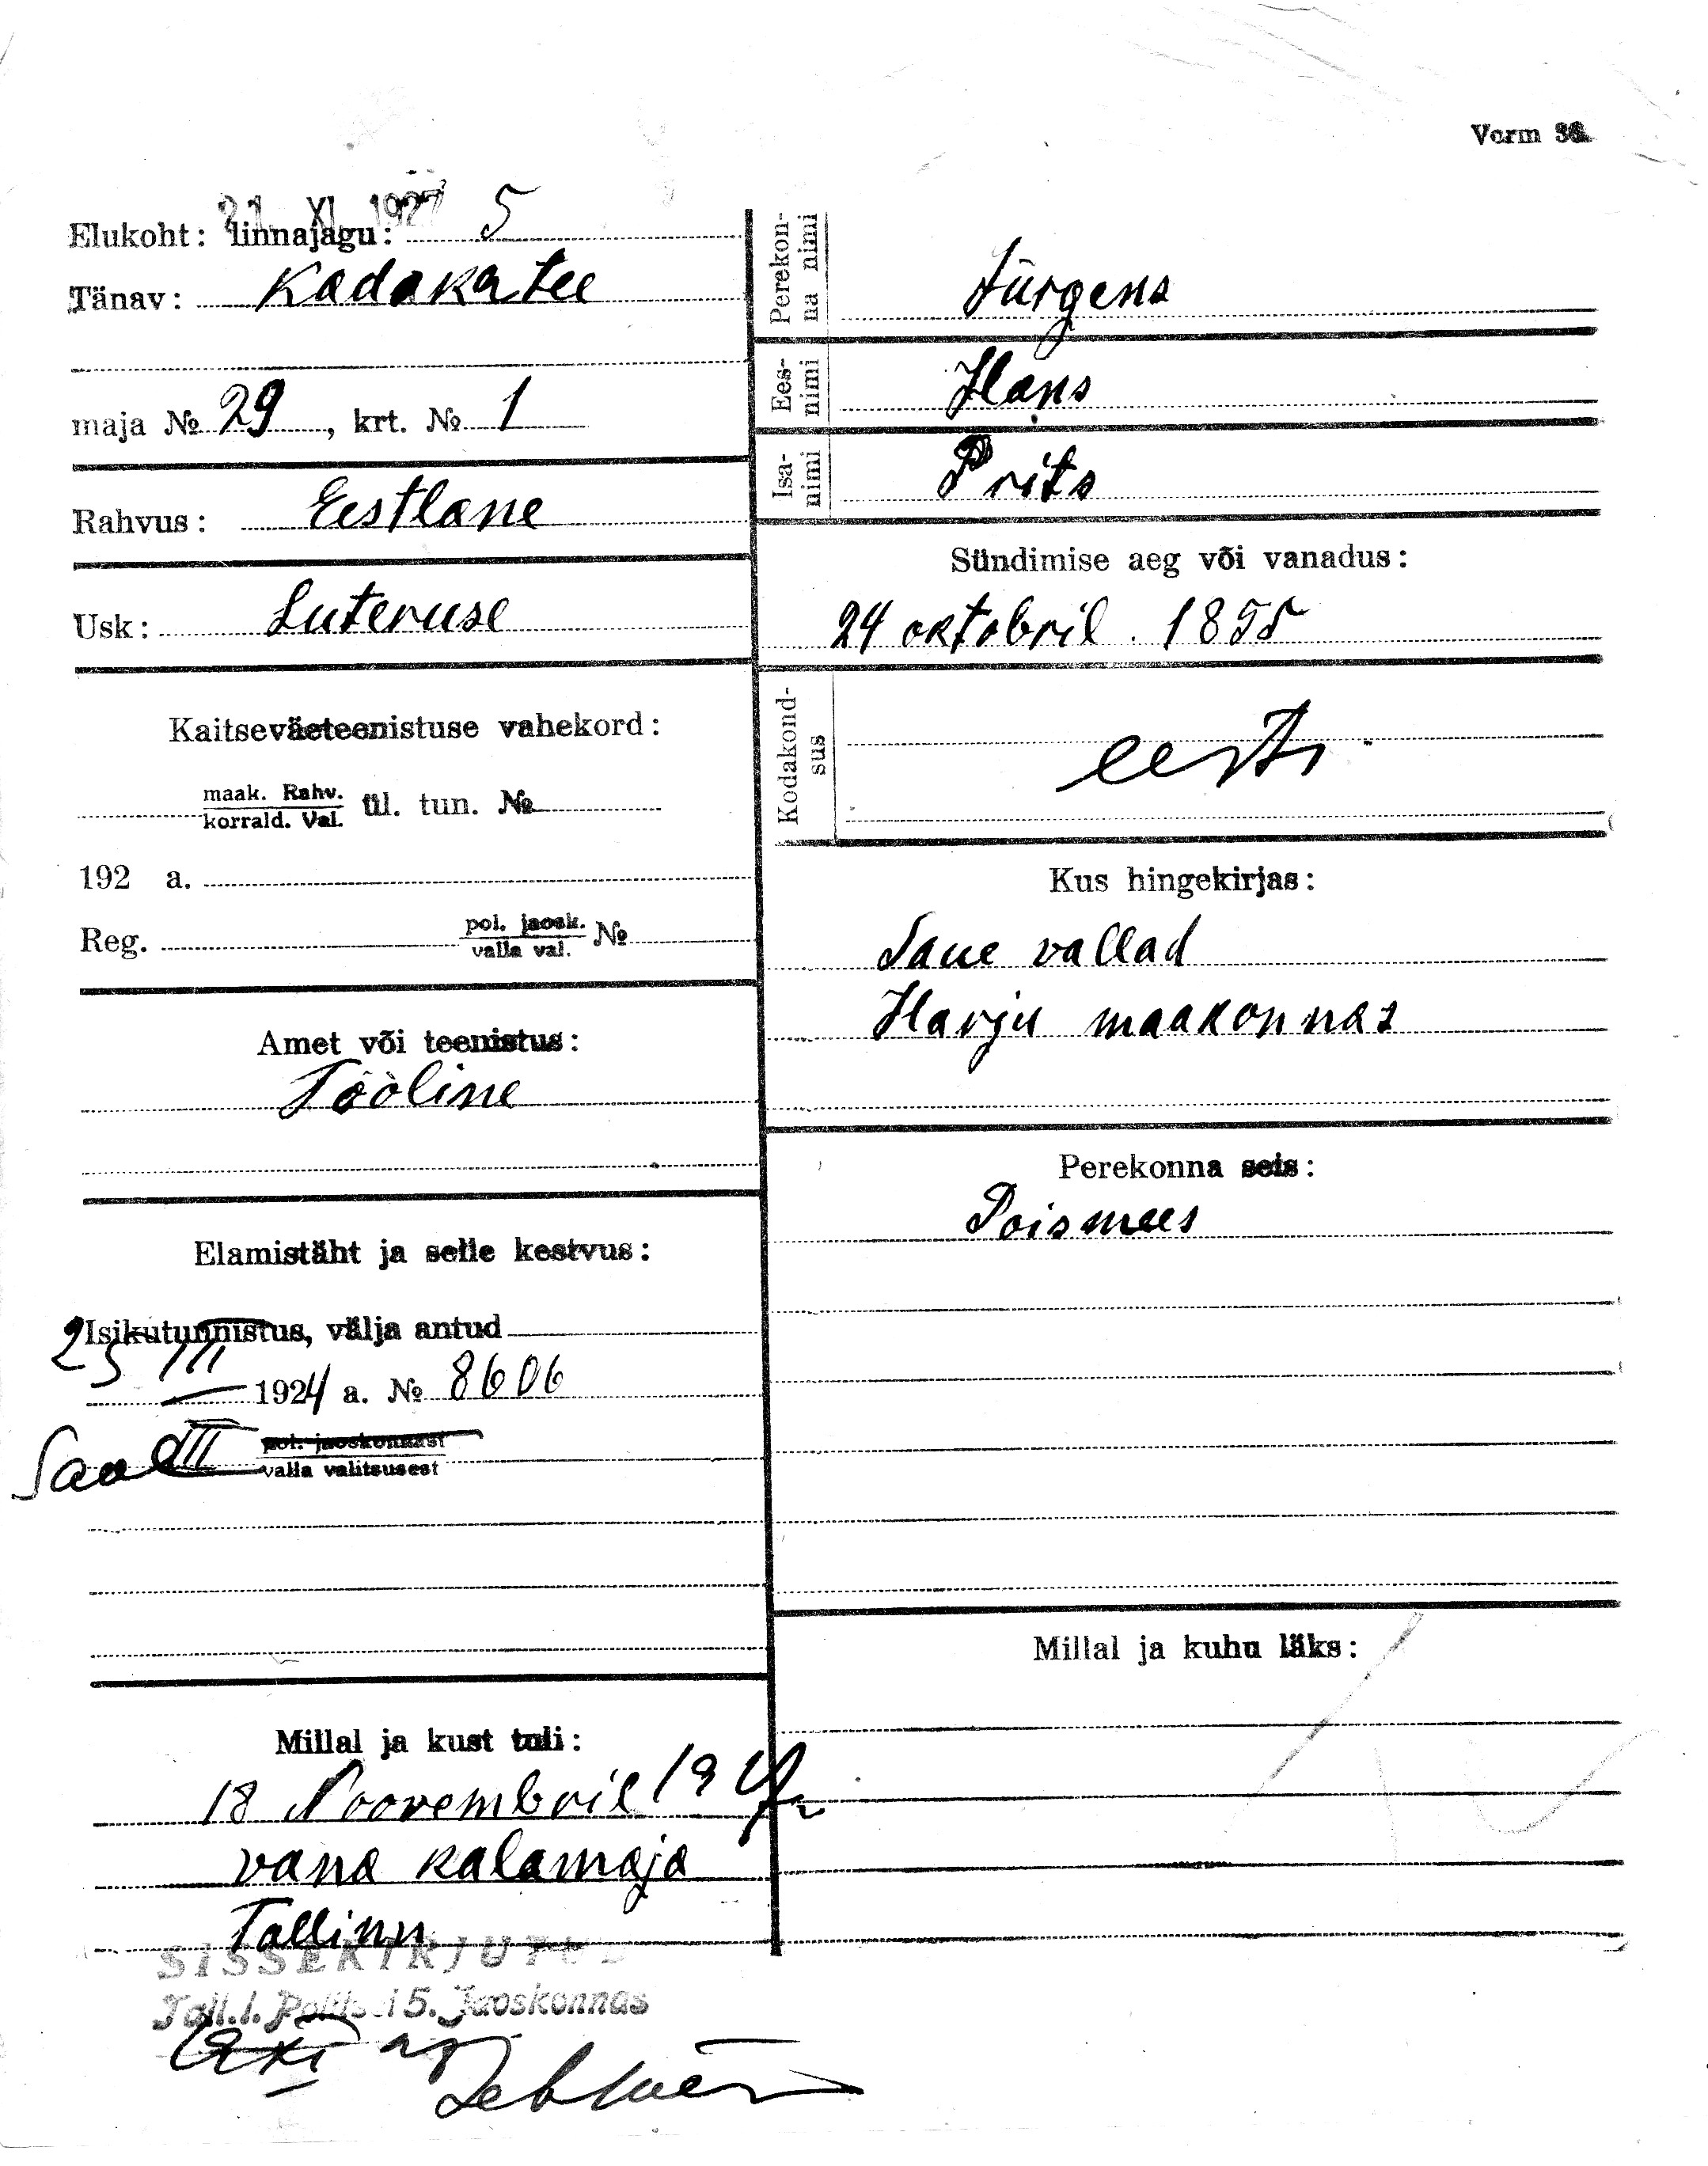 Vorm 36.
21 XI 1927
Elukoht: linnajagu: 5
Tänav: Kadaka tee
maja № 29, krt. № 1
Rahvus: Eestlane
Usk: Luteruse
Kaitseväeteenistuse vahekord:
maak. Rahv.
korrald. Val. ül. tun. №
192 a.
Reg. pol. jaosk.
valla val. №
Amet või teenistus:
Tööline
Elamistäht ja selle kestvus:
Isikutunnistus, välja antud
25 III 1924 a. № 8606
pol. jaoskonnast
valla valitsusest
Millal ja kust tuli:
18 Noovembril
vana kalamaja
Tallinn
SISSEKIRJUTUD
Tall.l. Politsei 5. Jaoskonnas
Perekon-
na nimi
Jürgens
Ees-
nimi
Hans
Isa-
nimi
Prits
Sündimise aeg või vanadus:
24 oktobril. 1855
Kodakond-
sus
eesti
Kus hingekirjas:
Saue vallad
Harju maakonnas
Perekonna seis:
Poismees
Millal ja kuhu läks: